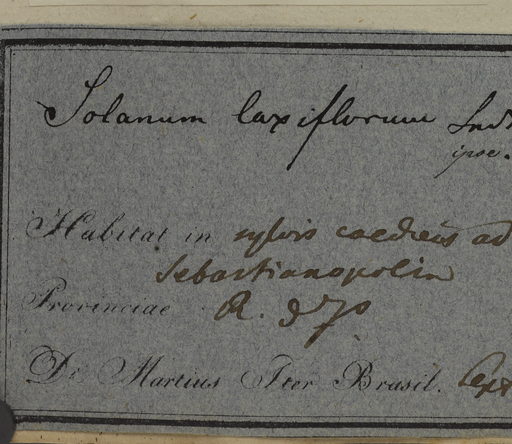 Solanum laxiflorum Sendt
ipse.
Habitat in sylvis caeduis ad
Sebastianopolin
Provinciae R. d J.
Dr. Martius Iter Brasil. Sept